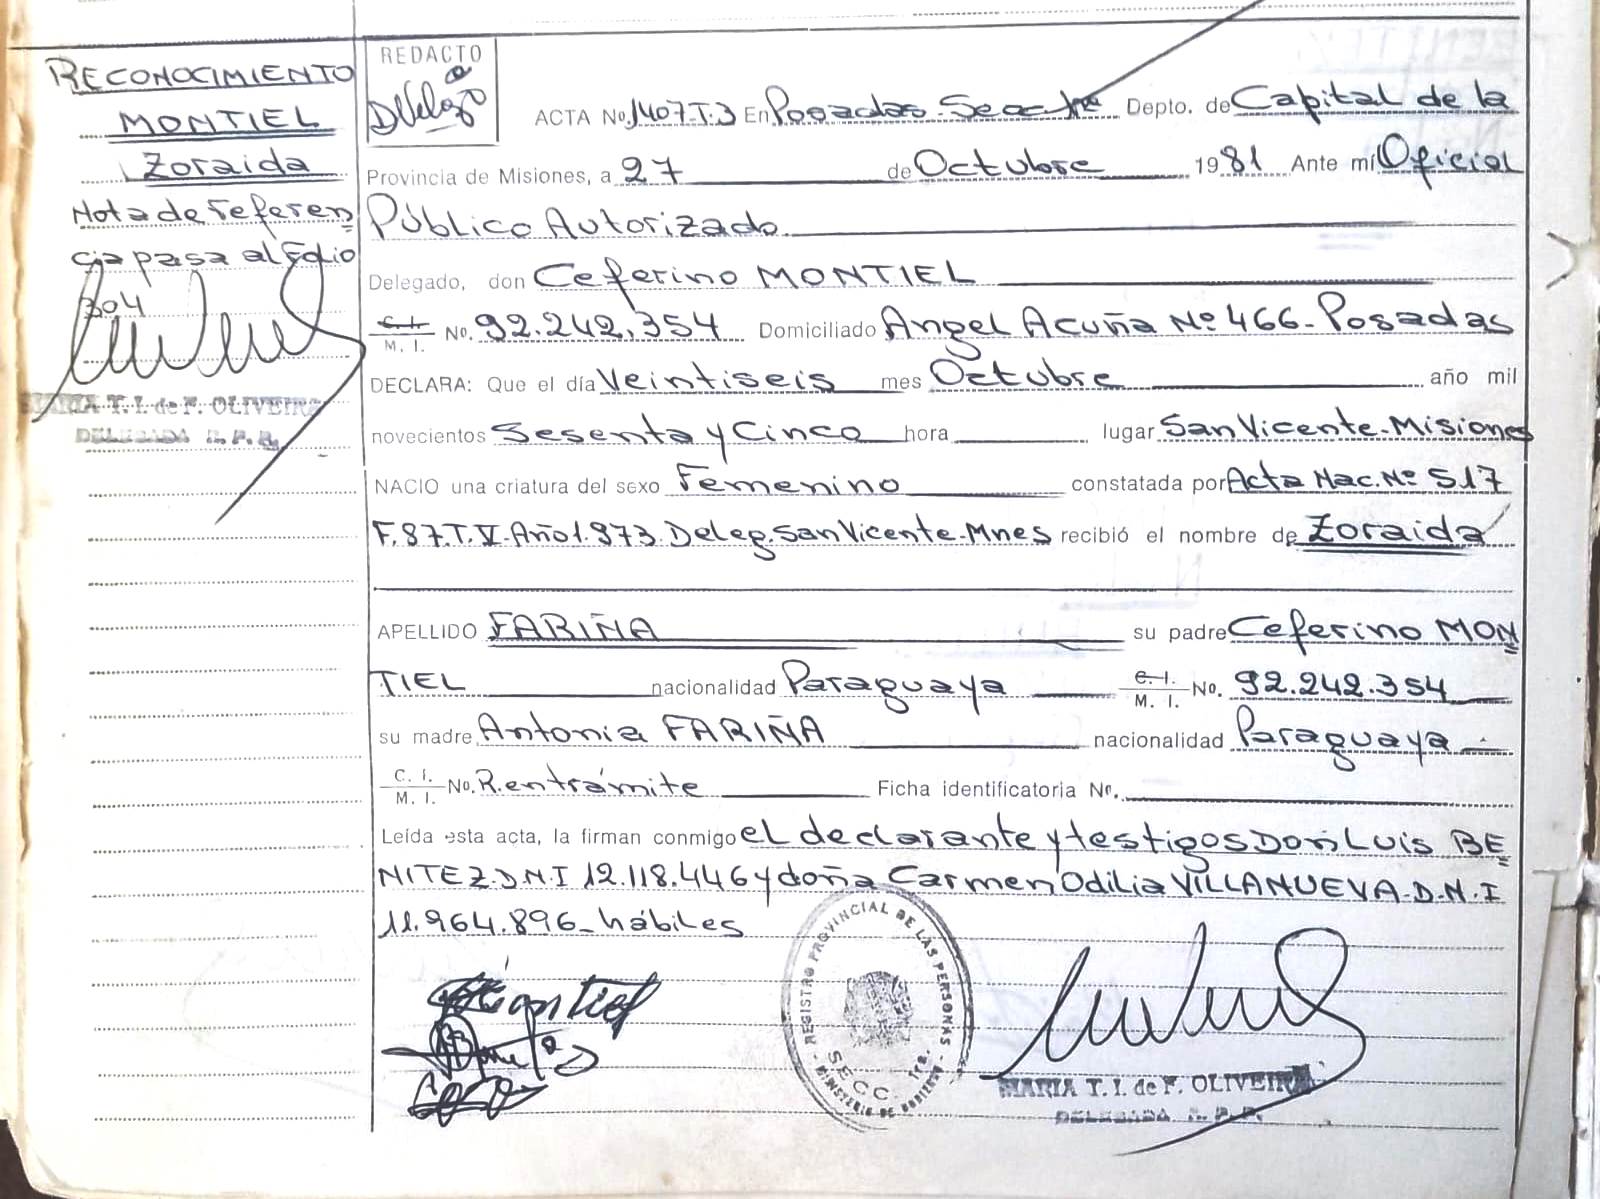 RECONOCIMIENTO
MONTIEL
Zoraida
Nota de referen
cia pasa al Folio
304
MARIA T. I. de F. OLIVEIRA
DELEGADA R. P. P.
REDACTO
ACTA No. 1407-T.3 En Posadas-Secc 1ra Depto. de Capital de la
Provincia de Misiones, a 27 de Octubre 1981 Ante mí Oficial
Público Autorizado
Delegado, don Ceferino MONTIEL
C. I. M. I. No. 92.242.354 Domiciliado Angel Acuña Nº 466-Posadas
DECLARA: Que el día Veintiseis mes Octubre año mil
novecientos Sesenta y Cinco hora lugar San Vicente-Misiones
NACIO una criatura del sexo Femenino constatada por Acta Nac. Nº 517
F.87.T.V-Año 1.973. Deleg. San Vicente-Mnes recibió el nombre de Zoraida
APELLIDO FARIÑA su padre Ceferino MON
TIEL nacionalidad Paraguaya C. I. M. I. No. 92.242.354
su madre Antonia FARIÑA nacionalidad Paraguaya
C. I. M. I. No. R. en trámite Ficha identificatoria No.
Leída esta acta, la firman conmigo el declarante y testigos Don Luis BE
NITEZ-D.N.I 12.118.446 y doña Carmen Odilia VILLANUEVA-D.N.I
11.964.896-hábiles
REGISTRO PROVINCIAL DE LAS PERSONAS
SECC. 1ra.
MINISTERIO DE GOBIERNO
MARIA T. I. de F. OLIVEIRA
DELEGADA R. P. P.